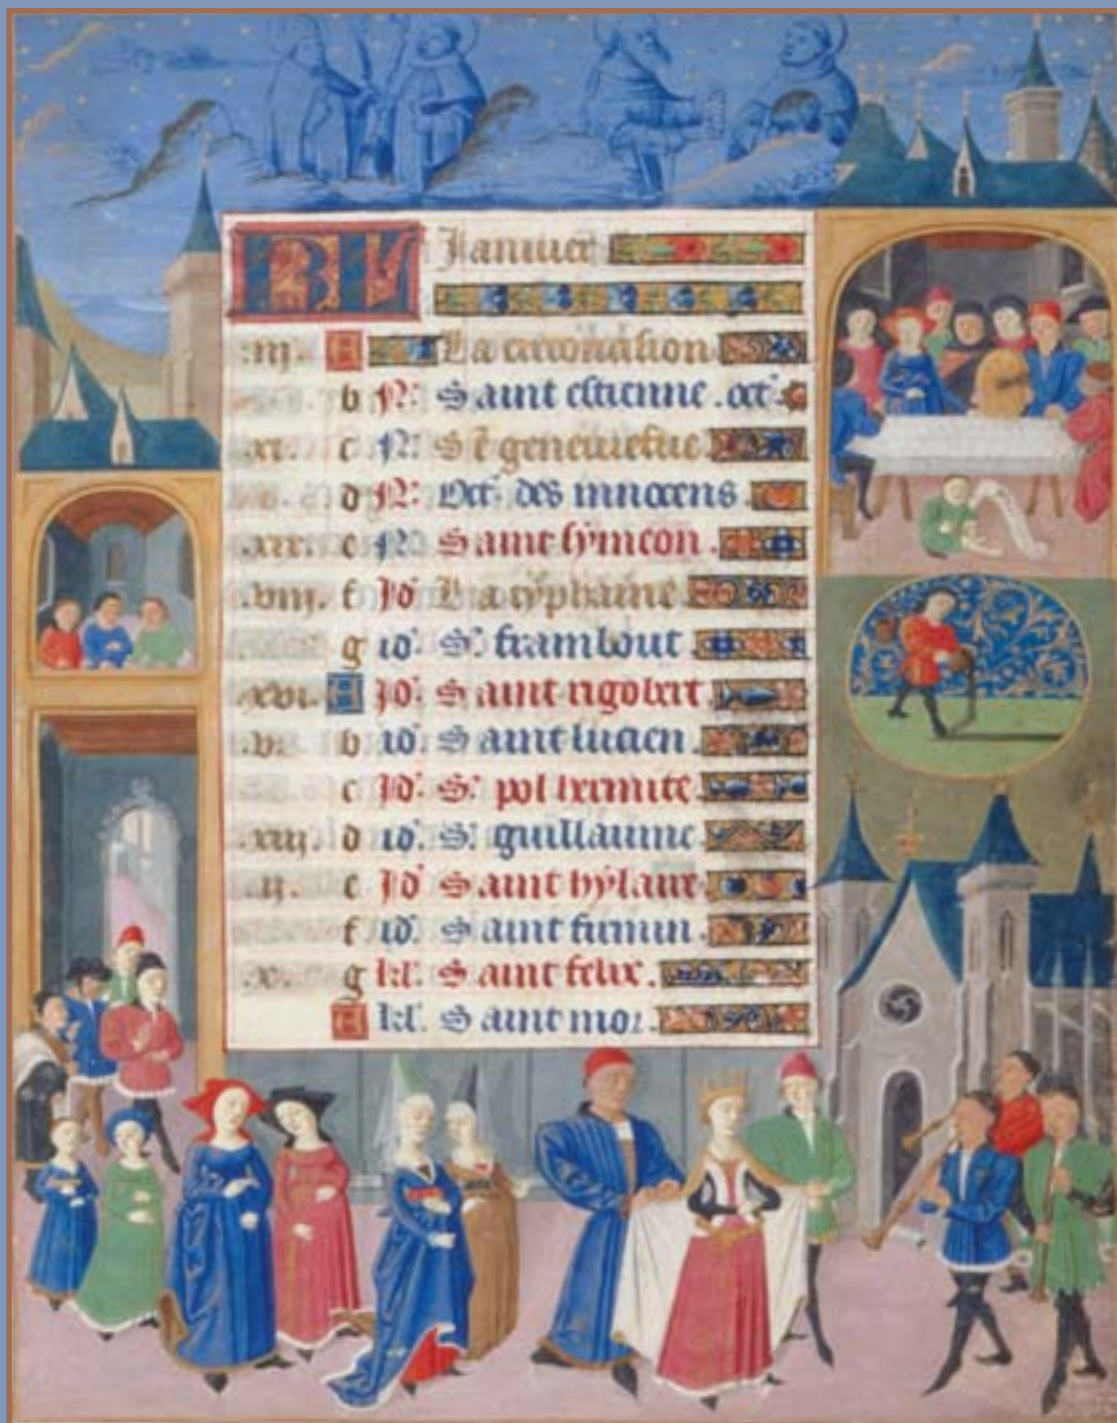 KL Januier
.iij. A La circonsision
b N: Saint estienne . oct.
.xi. c N: Ste geneuiefue.
d N: Oct. des innocens
.xix. e N: Saint symeon .
.viij. f Id La typhaine.
g id. S. frambout
.xvi. A Id. Saint rigobert.
.v. b id. Saint lucien.
c Id. S. pol hermite.
.xiij. d id. S. guillaume
.ij. e Id Saint hylaire
f id. Saint firmin.
.x. g kl. Saint felix.
A kl. Saint mor.